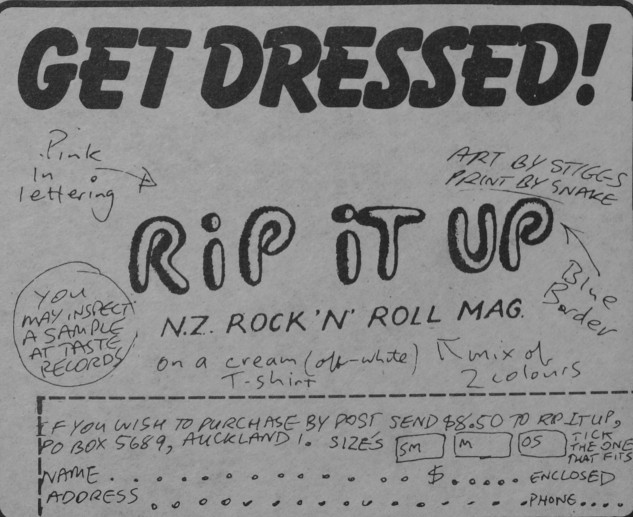 GET DRESSED!
Pink
in
lettering
ART BY STIGGS
PRINT BY SNAKE
RiP iT UP
Blue
Border
N.Z. ROCK 'N' ROLL MAG.
YOU
MAY INSPECT
A SAMPLE
AT TASTE
RECORDS
on a cream (off-white)
T-shirt
mix of
2 colours
IF YOU WISH TO PURCHASE BY POST SEND $8.50 TO RIP IT UP,
PO BOX 5689, AUCKLAND 1. SIZES SM M OS TICK
THE ONE
THAT FITS
NAME . . . . . . . . . . . . . $ . . . . . ENCLOSED
ADDRESS . . . . . . . . . . . . . . . . . PHONE . . . .